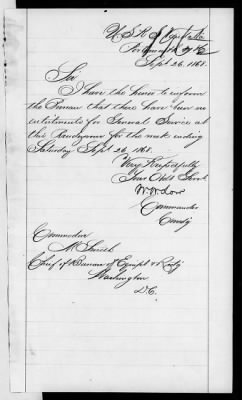 U.S.R.S. Vandalia
Portsmouth N.H.
Sept. 26. 1868.
Sir
I have the honor to inform
the Bureau that there have been no
enlistments for General Service at
this Rendezvous for the week ending
Saturday Sept. 26, 1868.
Very Respectfully
Your Obdt. Servt.
W. W. Low
Commander
Comdg
Commodore
M. Smith
Chief of Bureau of Equipt & Rectg
Washington
D.C.